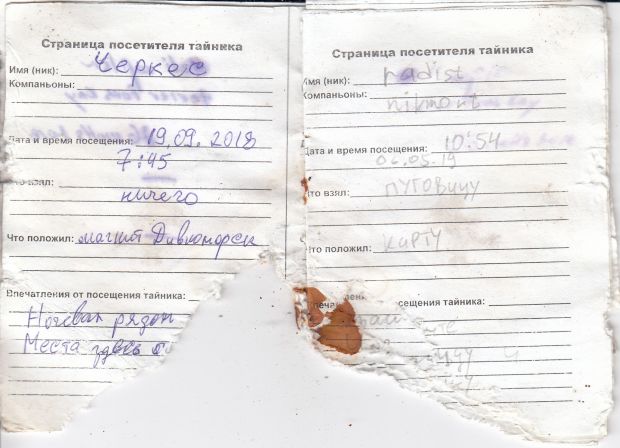 Страница посетителя тайника
Имя (ник): Черкес
Компаньоны:
Дата и время посещения: 19.09.2018
7:45
Что взял:
ничего
Что положил: магнит Дивноморск
Впечатления от посещения тайника:
Ночевал рядом
Места здесь
Страница посетителя тайника
Имя (ник): radist
Компаньоны:
nikmont
Дата и время посещения: 10:54
06.05.19
Что взял: пуговицу
Что положил: карту
посещения тайника: